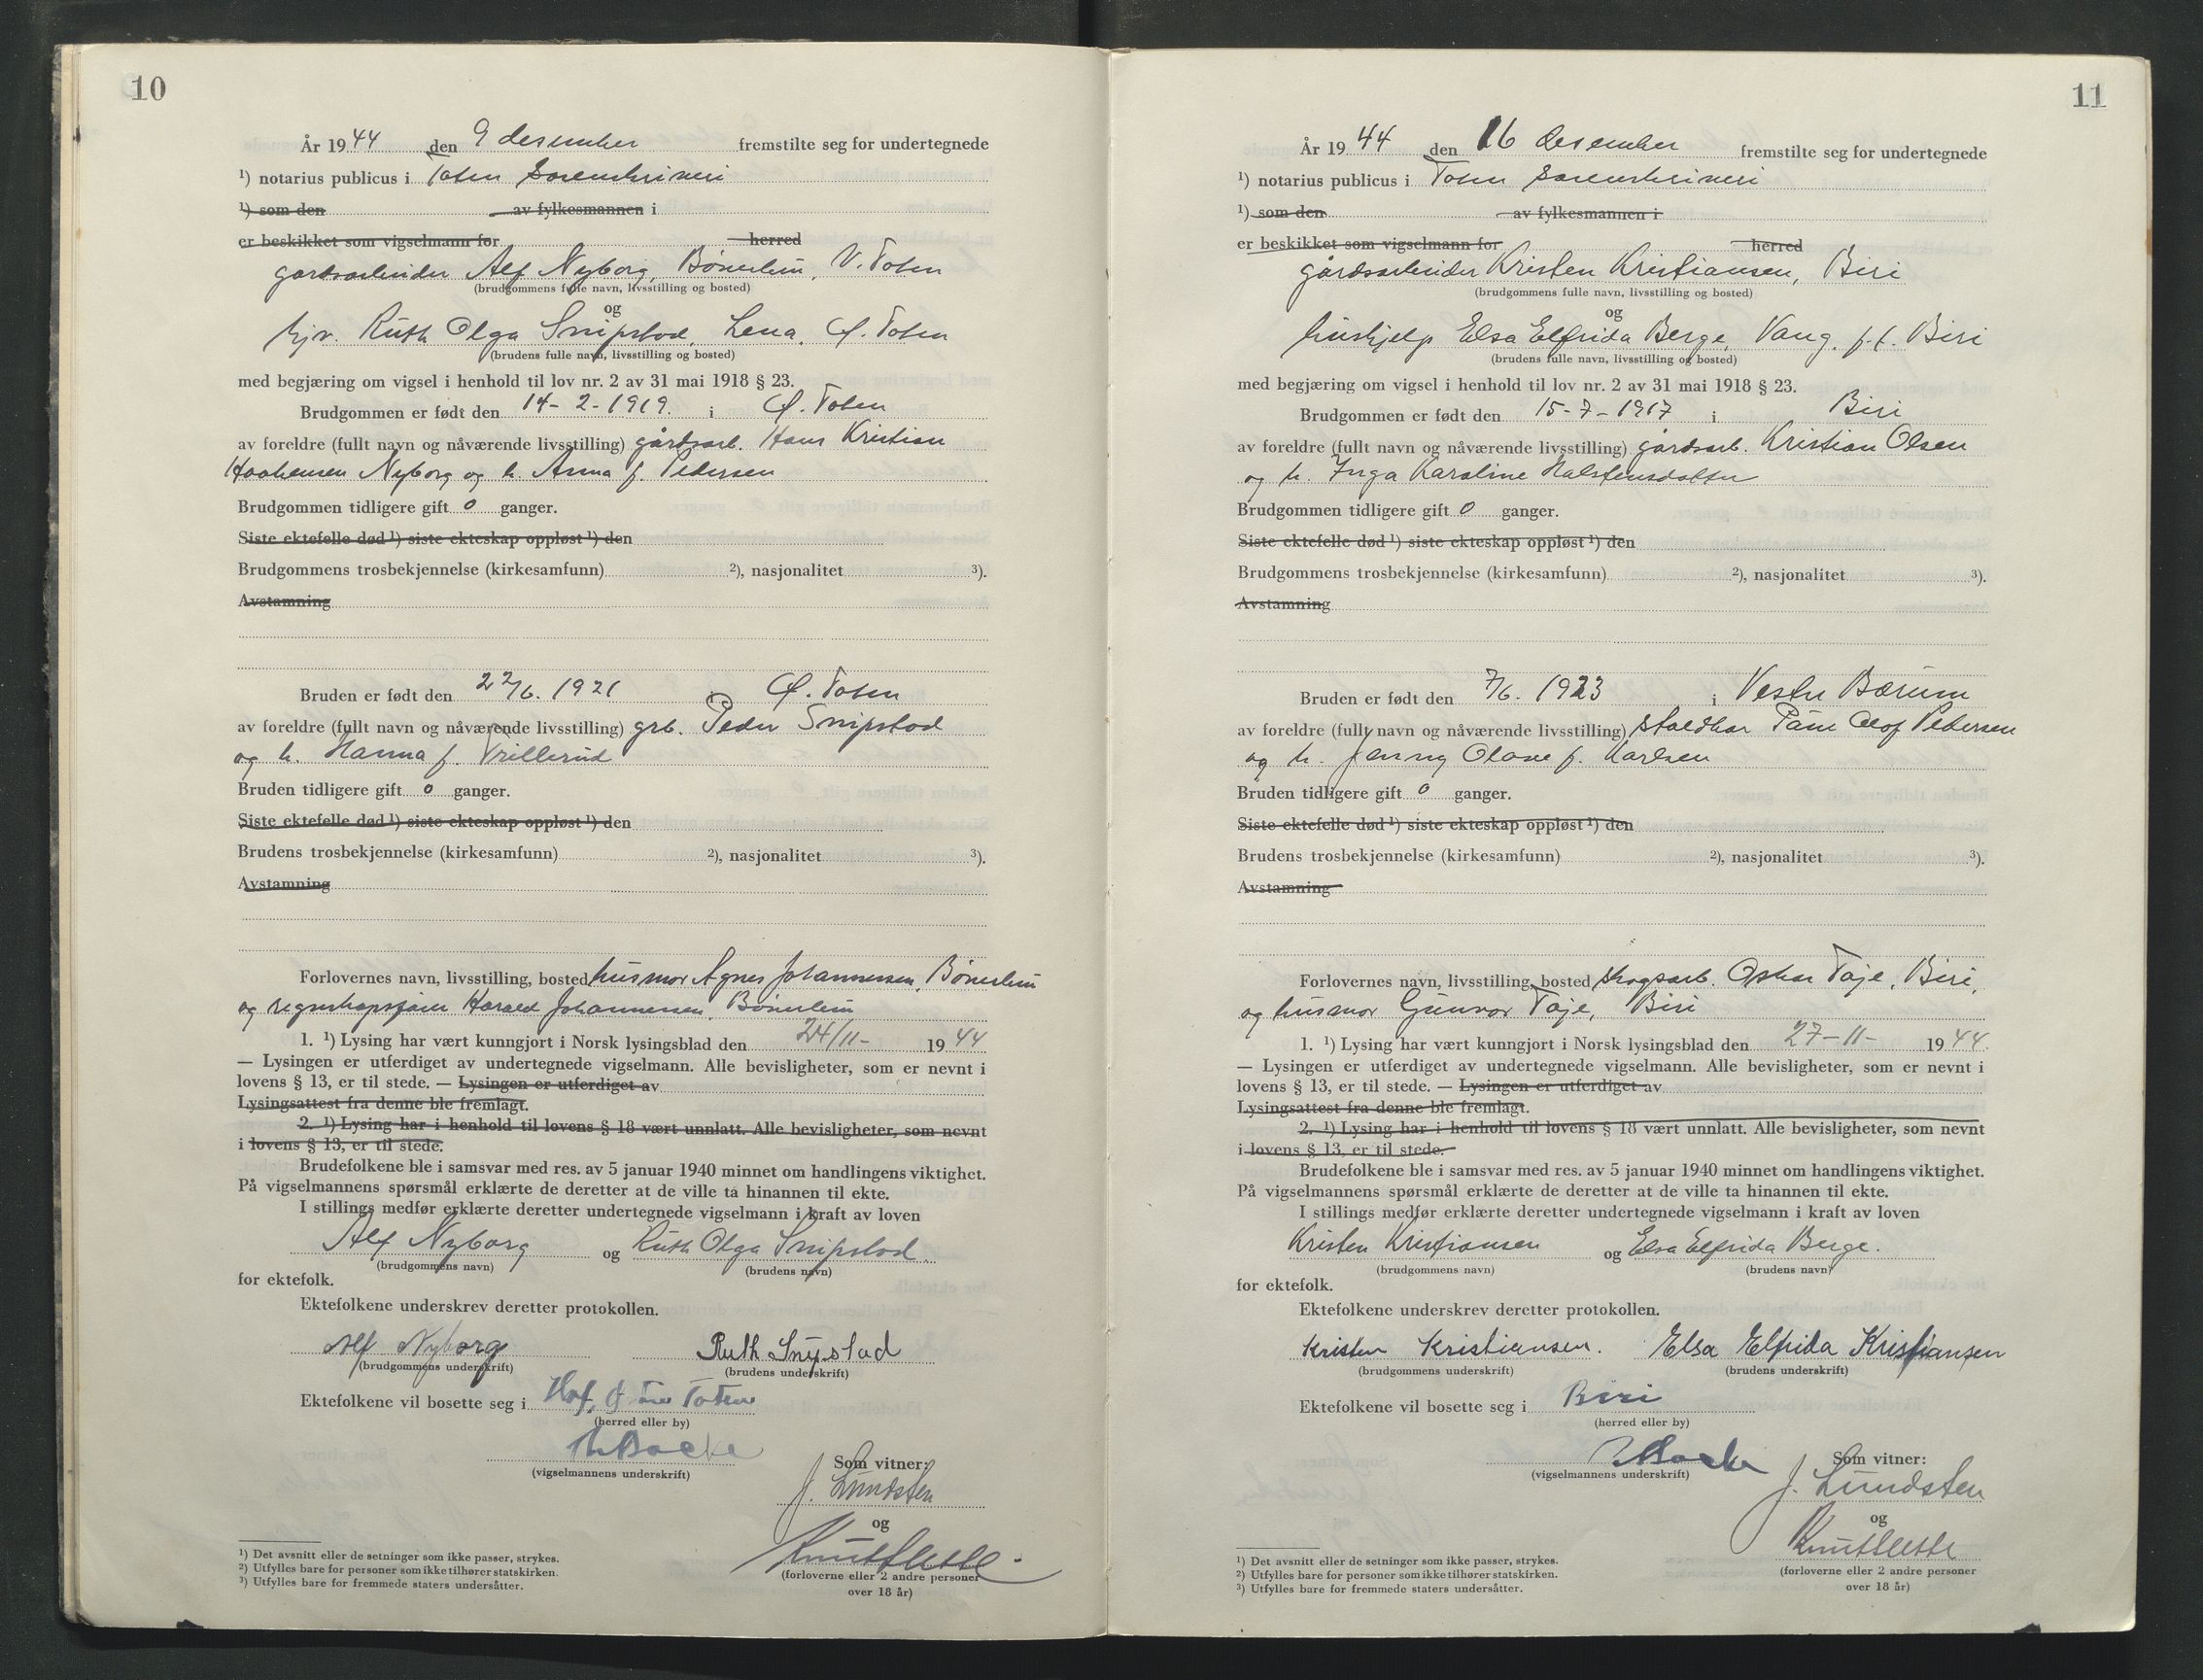 10
År 1944 den 9 desember fremstilte seg for undertegnede
¹) notarius publicus i Toten Sorenskriveri
¹) som den av fylkesmannen i
er beskikket som vigselmann for herred
gårdsarbeider Alf Nyborg, Bøverbru, V. Toten
(brudgommens fulle navn, livsstilling og bosted)
og
hjv. Ruth Olga Snipstad, Lena, Ø. Toten
(brudens fulle navn, livsstilling og bosted)
med begjæring om vigsel i henhold til lov nr. 2 av 31 mai 1918 § 23.
Brudgommen er født den 14-2-1919. i Ø. Toten
av foreldre (fullt navn og nåværende livsstilling) gårdsarb. Hans Kristian
Haakensen Nyborg og h. Anna f. Pedersen
Brudgommen tidligere gift 0 ganger.
Siste ektefelle død ¹) siste ekteskap oppløst ¹) den
Brudgommens trosbekjennelse (kirkesamfunn) ²), nasjonalitet ³).
Avstamning
Bruden er født den 22/6. 1921 i Ø. Toten
av foreldre (fullt navn og nåværende livsstilling) grb. Peder Snipstad
og h. Hanna f.
Bruden tidligere gift 0 ganger.
Siste ektefelle død ¹) siste ekteskap oppløst ¹) den
Brudens trosbekjennelse (kirkesamfunn) ²), nasjonalitet ³).
Avstamning
Forlovernes navn, livsstilling, bosted husmor Agnes Johannessen, Bøverbru
og regnskapsfører Harald Johannessen, Bøverbru
1. ¹) Lysing har vært kunngjort i Norsk lysingsblad den 24/11- 1944
— Lysingen er utferdiget av undertegnede vigselmann. Alle bevisligheter, som er nevnt i
lovens § 13, er til stede. — Lysingen er utferdiget av
Lysingsattest fra denne ble fremlagt.
2. ¹) Lysing har i henhold til lovens § 18 vært unnlatt. Alle bevisligheter, som nevnt
i lovens § 13, er til stede.
Brudefolkene ble i samsvar med res. av 5 januar 1940 minnet om handlingens viktighet.
På vigselmannens spørsmål erklærte de deretter at de ville ta hinannen til ekte.
I stillings medfør erklærte deretter undertegnede vigselmann i kraft av loven
Alf Nyborg og Ruth Olga Snipstad
(brudgommens navn) (brudens navn)
for ektefolk.
Ektefolkene underskrev deretter protokollen.
Alf Nyborg Ruth Snipstad
(brudgommens underskrift) (brudens underskrift)
Ektefolkene vil bosette seg i Hof, Østre Toten
(herred eller by)
(vigselmannens underskrift)
Som vitner:
J. Lundsten
og
(forloverne eller 2 andre personer
over 18 år)
¹) Det avsnitt eller de setninger som ikke passer, strykes.
²) Utfylles bare for personer som ikke tilhører statskirken.
³) Utfylles bare for fremmede staters undersåtter.
11
År 1944 den 16 desember fremstilte seg for undertegnede
¹) notarius publicus i Toten Sorenskriveri
¹) som den av fylkesmannen i
er beskikket som vigselmann for herred
gårdsarbeider Kristen Kristiansen, Biri
(brudgommens fulle navn, livsstilling og bosted)
og
hushjelp Elsa Elfrida Berge, Vang, f.t. Biri
(brudens fulle navn, livsstilling og bosted)
med begjæring om vigsel i henhold til lov nr. 2 av 31 mai 1918 § 23.
Brudgommen er født den 15-7-1917 i Biri
av foreldre (fullt navn og nåværende livsstilling) gårdsarb. Kristian Olsen
og h. Inga Karoline Halstensdatter
Brudgommen tidligere gift 0 ganger.
Siste ektefelle død ¹) siste ekteskap oppløst ¹) den
Brudgommens trosbekjennelse (kirkesamfunn) ²), nasjonalitet ³).
Avstamning
Bruden er født den 7/6. 1923 i Vestre Bærum
av foreldre (fullt navn og nåværende livsstilling) Olof Pedersen
og h. Jenny Olave f. Karlsen
Bruden tidligere gift 0 ganger.
Siste ektefelle død ¹) siste ekteskap oppløst ¹) den
Brudens trosbekjennelse (kirkesamfunn) ²), nasjonalitet ³).
Avstamning
Forlovernes navn, livsstilling, bosted skogsarb. Oskar Taje, Biri,
og husmor Gunvor Taje, Biri
1. ¹) Lysing har vært kunngjort i Norsk lysingsblad den 27-11- 1944.
— Lysingen er utferdiget av undertegnede vigselmann. Alle bevisligheter, som er nevnt i
lovens § 13, er til stede. — Lysingen er utferdiget av
Lysingsattest fra denne ble fremlagt.
2. ¹) Lysing har i henhold til lovens § 18 vært unnlatt. Alle bevisligheter, som nevnt
i lovens § 13, er til stede.
Brudefolkene ble i samsvar med res. av 5 januar 1940 minnet om handlingens viktighet.
På vigselmannens spørsmål erklærte de deretter at de ville ta hinannen til ekte.
I stillings medfør erklærte deretter undertegnede vigselmann i kraft av loven
Kristen Kristiansen og Elsa Elfrida Berge.
(brudgommens navn) (brudens navn)
for ektefolk.
Ektefolkene underskrev deretter protokollen.
Kristen Kristiansen. Elsa Elfrida Kristiansen
(brudgommens underskrift) (brudens underskrift)
Ektefolkene vil bosette seg i Biri
(herred eller by)
(vigselmannens underskrift)
Som vitner:
J. Lundsten
og
(forloverne eller 2 andre personer
over 18 år)
¹) Det avsnitt eller de setninger som ikke passer, strykes.
²) Utfylles bare for personer som ikke tilhører statskirken.
³) Utfylles bare for fremmede staters undersåtter.